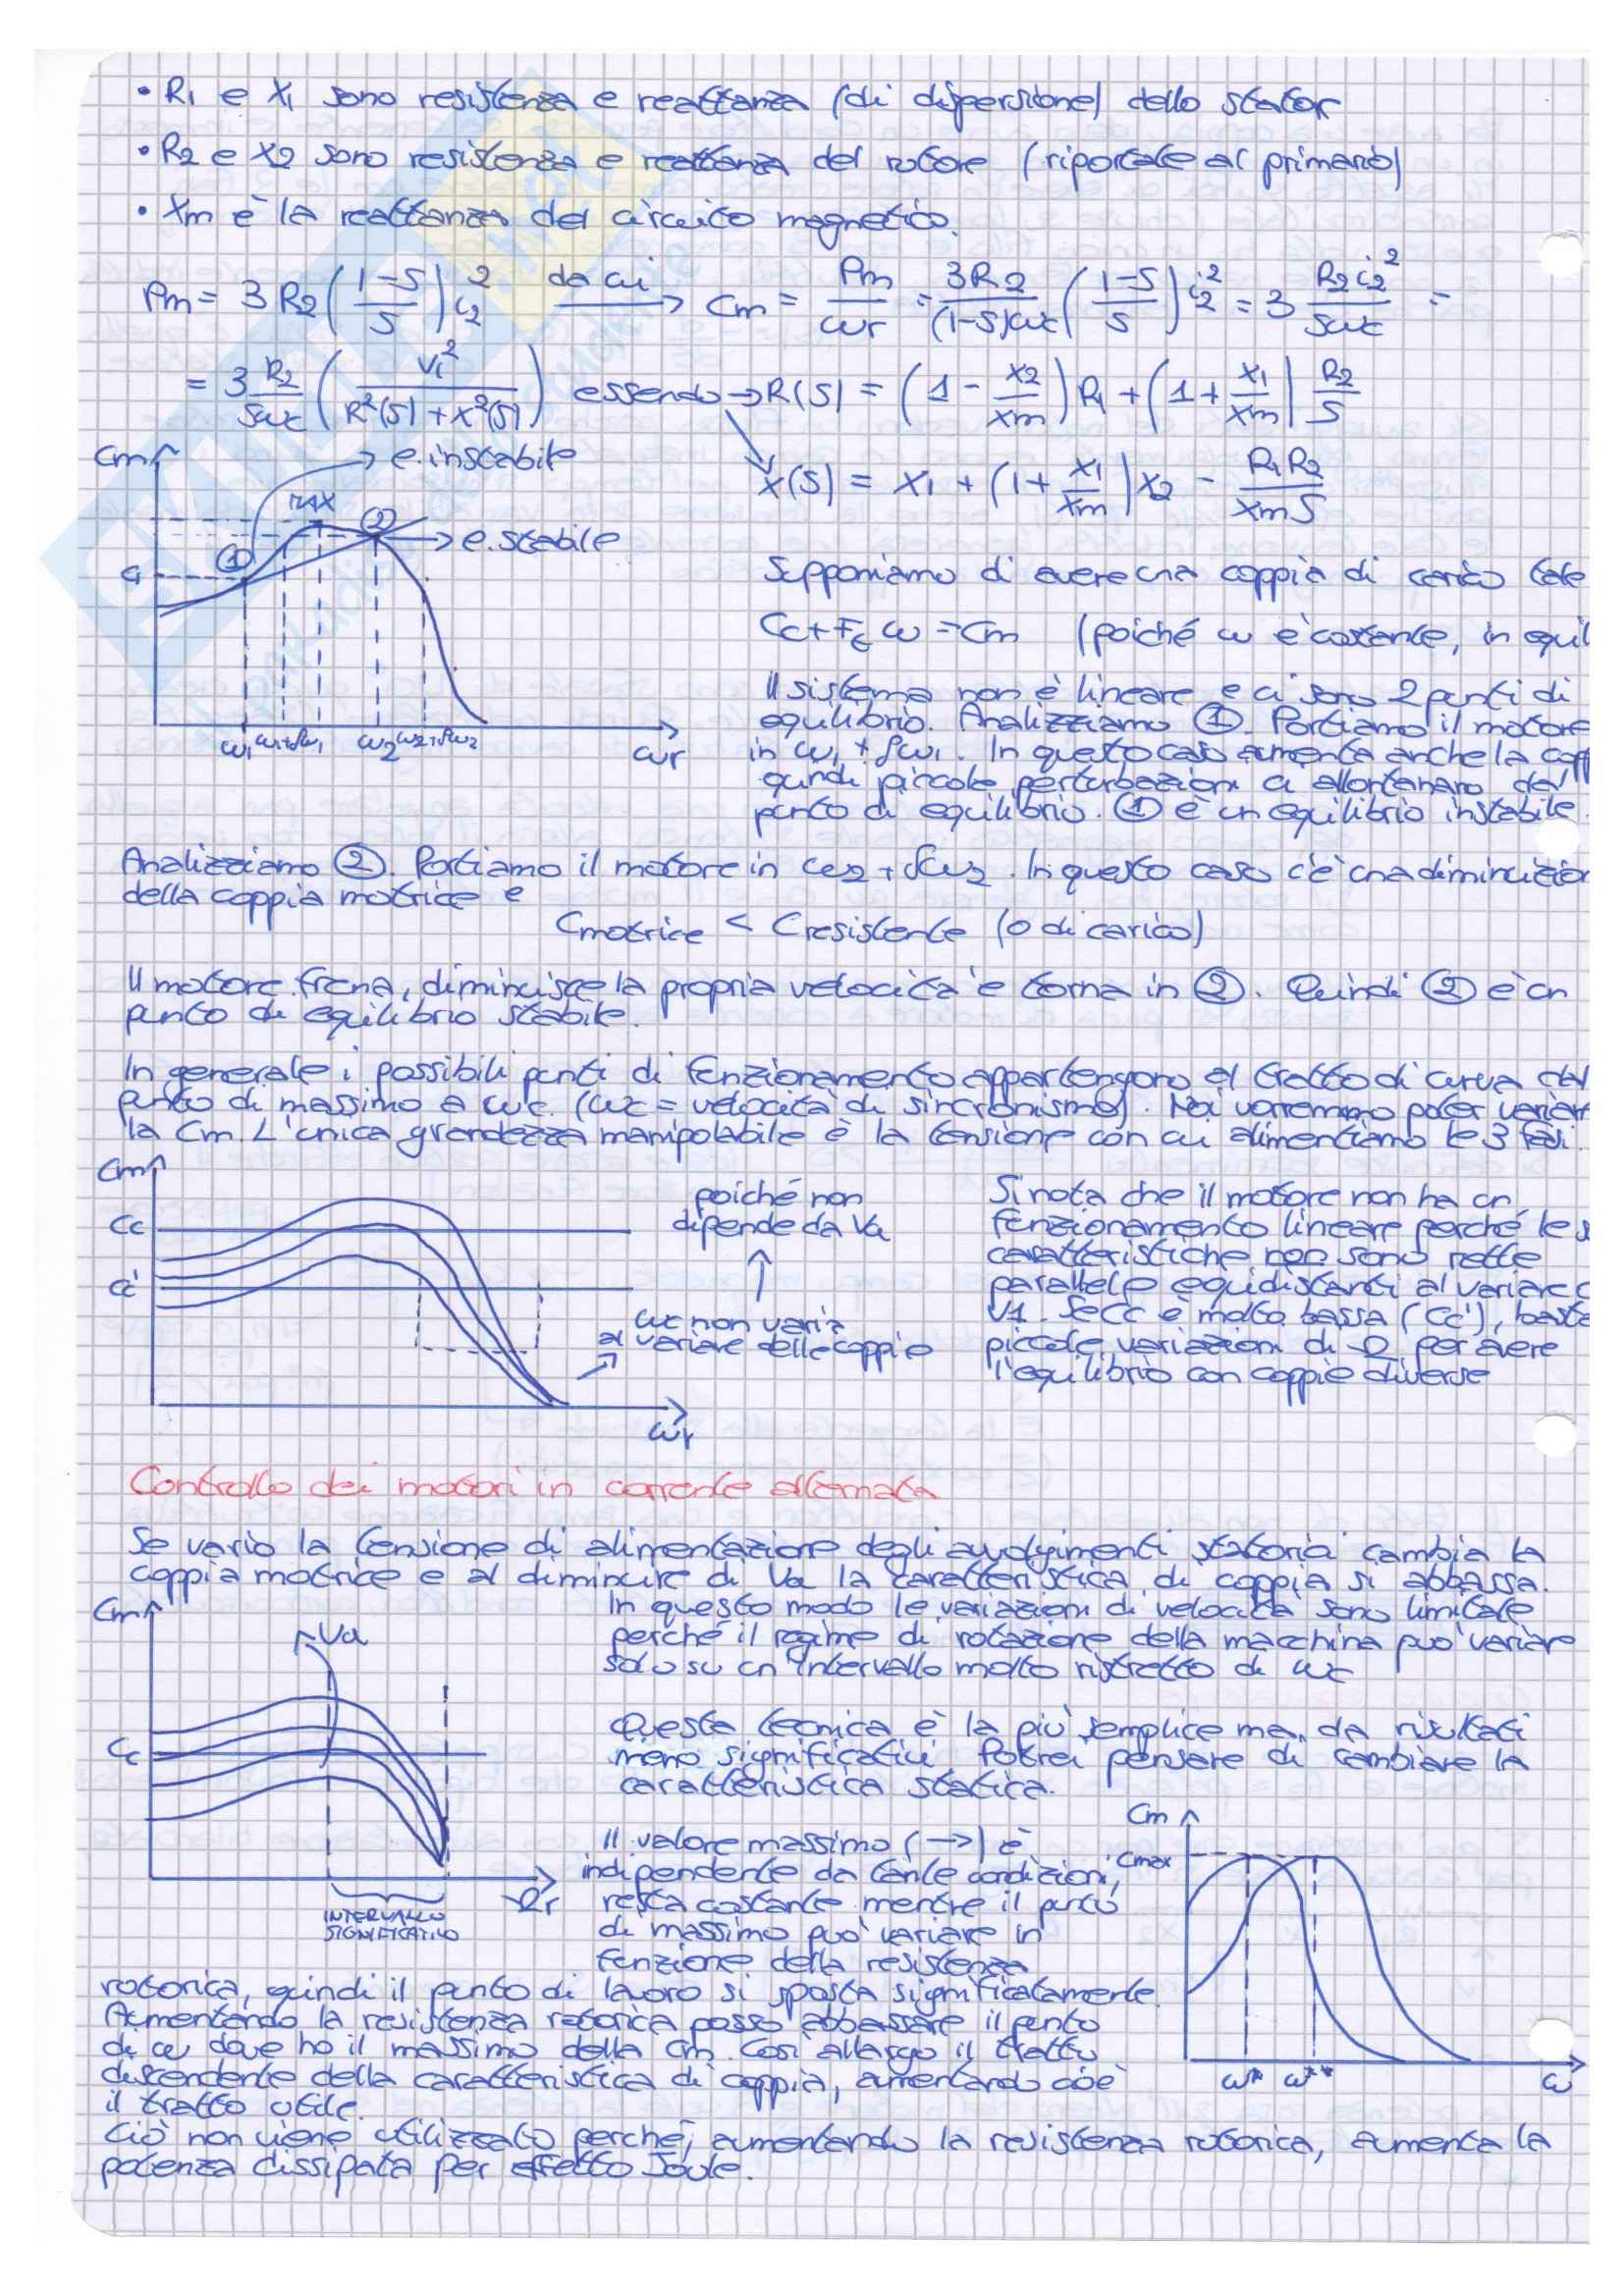 • R1 e X1 sono resistenza e reattanza (di dispersione) dello stator
• R2 e X2 sono resistenza e reattanza del rotore (riportate al primario)
• Xm è la reattanza del circuito magnetico.
Pm = 3 R2 ( (1-S)/S ) i2^2 da cui → Cm = Pm/ωr = 3R2/((1-S)ωc) ( (1-S)/S ) i2^2 = 3 R2 i2^2/(Sωc) =
= 3 R2/(Sωc) ( V1^2/(R^2(S) + X^2(S)) ) essendo → R(S) = ( 1 - X2/Xm ) R1 + ( 1 + X1/Xm ) R2/S
X(S) = X1 + (1 + X1/Xm) X2 - R1R2/(XmS)
Cm
e. instabile
MAX
①
②
e. stabile
C1
ω1 ω1+δω1 ω2 ω2+δω2 ωr
Supponiamo di avere una coppia di carico tale
Cc + Ft ω = Cm (poiché ω è costante, in equil
Il sistema non è lineare e ci sono 2 punti di
equilibrio. Analizziamo ①. Portiamo il motore
in ω1 + δω1. In questo caso aumenta anche la copp
quindi piccole perturbazioni ci allontanano dal
punto di equilibrio. ① è un equilibrio instabile.
Analizziamo ②. Portiamo il motore in ω2 + δω2. In questo caso c'è una diminuzion
della coppia motrice e
Cmotrice < Cresistente (o di carico)
Il motore frena, diminuisce la propria velocità e torna in ②. Quindi ② è un
punto di equilibrio stabile.
In generale i possibili punti di funzionamento appartengono al tratto di curva dal
punto di massimo a ωc. (ωc = velocità di sincronismo). Noi vorremmo poter variar
la Cm. L'unica grandezza manipolabile è la tensione con cui alimentiamo le 3 fasi.
Cm
Cc
Cc'
ωr
poiché non
dipende da Va
ωc non varia
al variare delle coppie
Si nota che il motore non ha un
funzionamento lineare perché le s
caratteristiche non sono rette
parallele equidistanti al variare d
V1. Se Cc è molto bassa (Cc'), basta
piccole variazioni di Ω per avere
l'equilibrio con coppie diverse
Controllo dei motori in corrente alternata
Se vario la tensione di alimentazione degli avvolgimenti statorici cambia la
coppia motrice e al diminuire di Va la caratteristica di coppia si abbassa.
In questo modo le variazioni di velocità sono limitate
perché il regime di rotazione della macchina può variare
solo su un intervallo molto ristretto di ωc
Cm
Va
Cc
Ωr
INTERVALLO
SIGNIFICATIVO
Questa tecnica è la più semplice ma da risultati
meno significativi. Potrei pensare di cambiare la
caratteristica statica.
Il valore massimo (→) è
indipendente da tante condizioni,
resta costante mentre il punto
di massimo può variare in
funzione della resistenza
Cm
Cmax
ω* ω** ω
rotorica, quindi il punto di lavoro si sposta significatamente.
Aumentando la resistenza rotorica posso abbassare il punto
di ω dove ho il massimo della Cm. Così allargo il tratto
discendente della caratteristica di coppia, aumentando cioè
il tratto utile.
Ciò non viene utilizzato perché, aumentando la resistenza rotorica, aumenta la
potenza dissipata per effetto Joule.